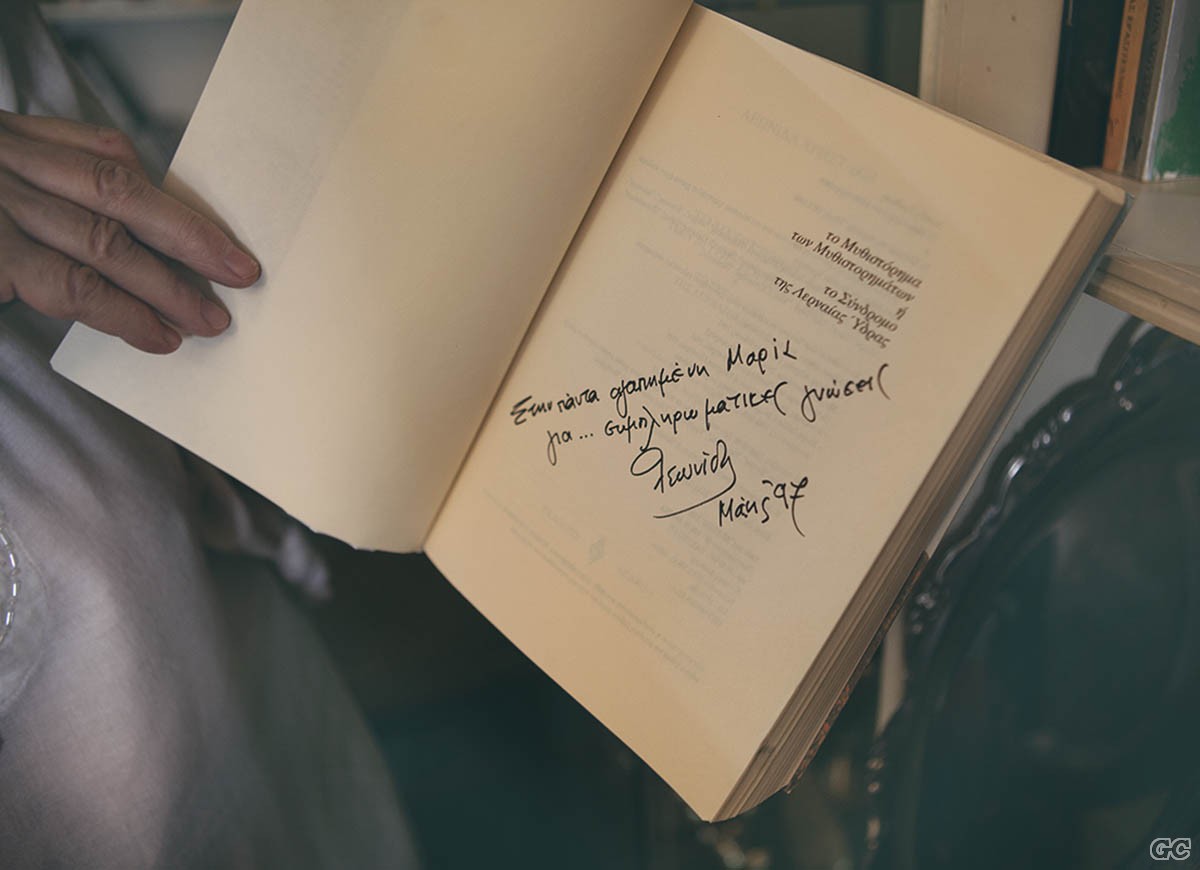 το Μυθιστόρημα
των Μυθιστορημάτων
ή
το Σύνδρομο
της Λερναίας Ύδρας
Στην πάντα αγαπημένη Μαρία
για... συμπληρωματικές γνώσεις
Λεωνίδας
Μάης '97
GC